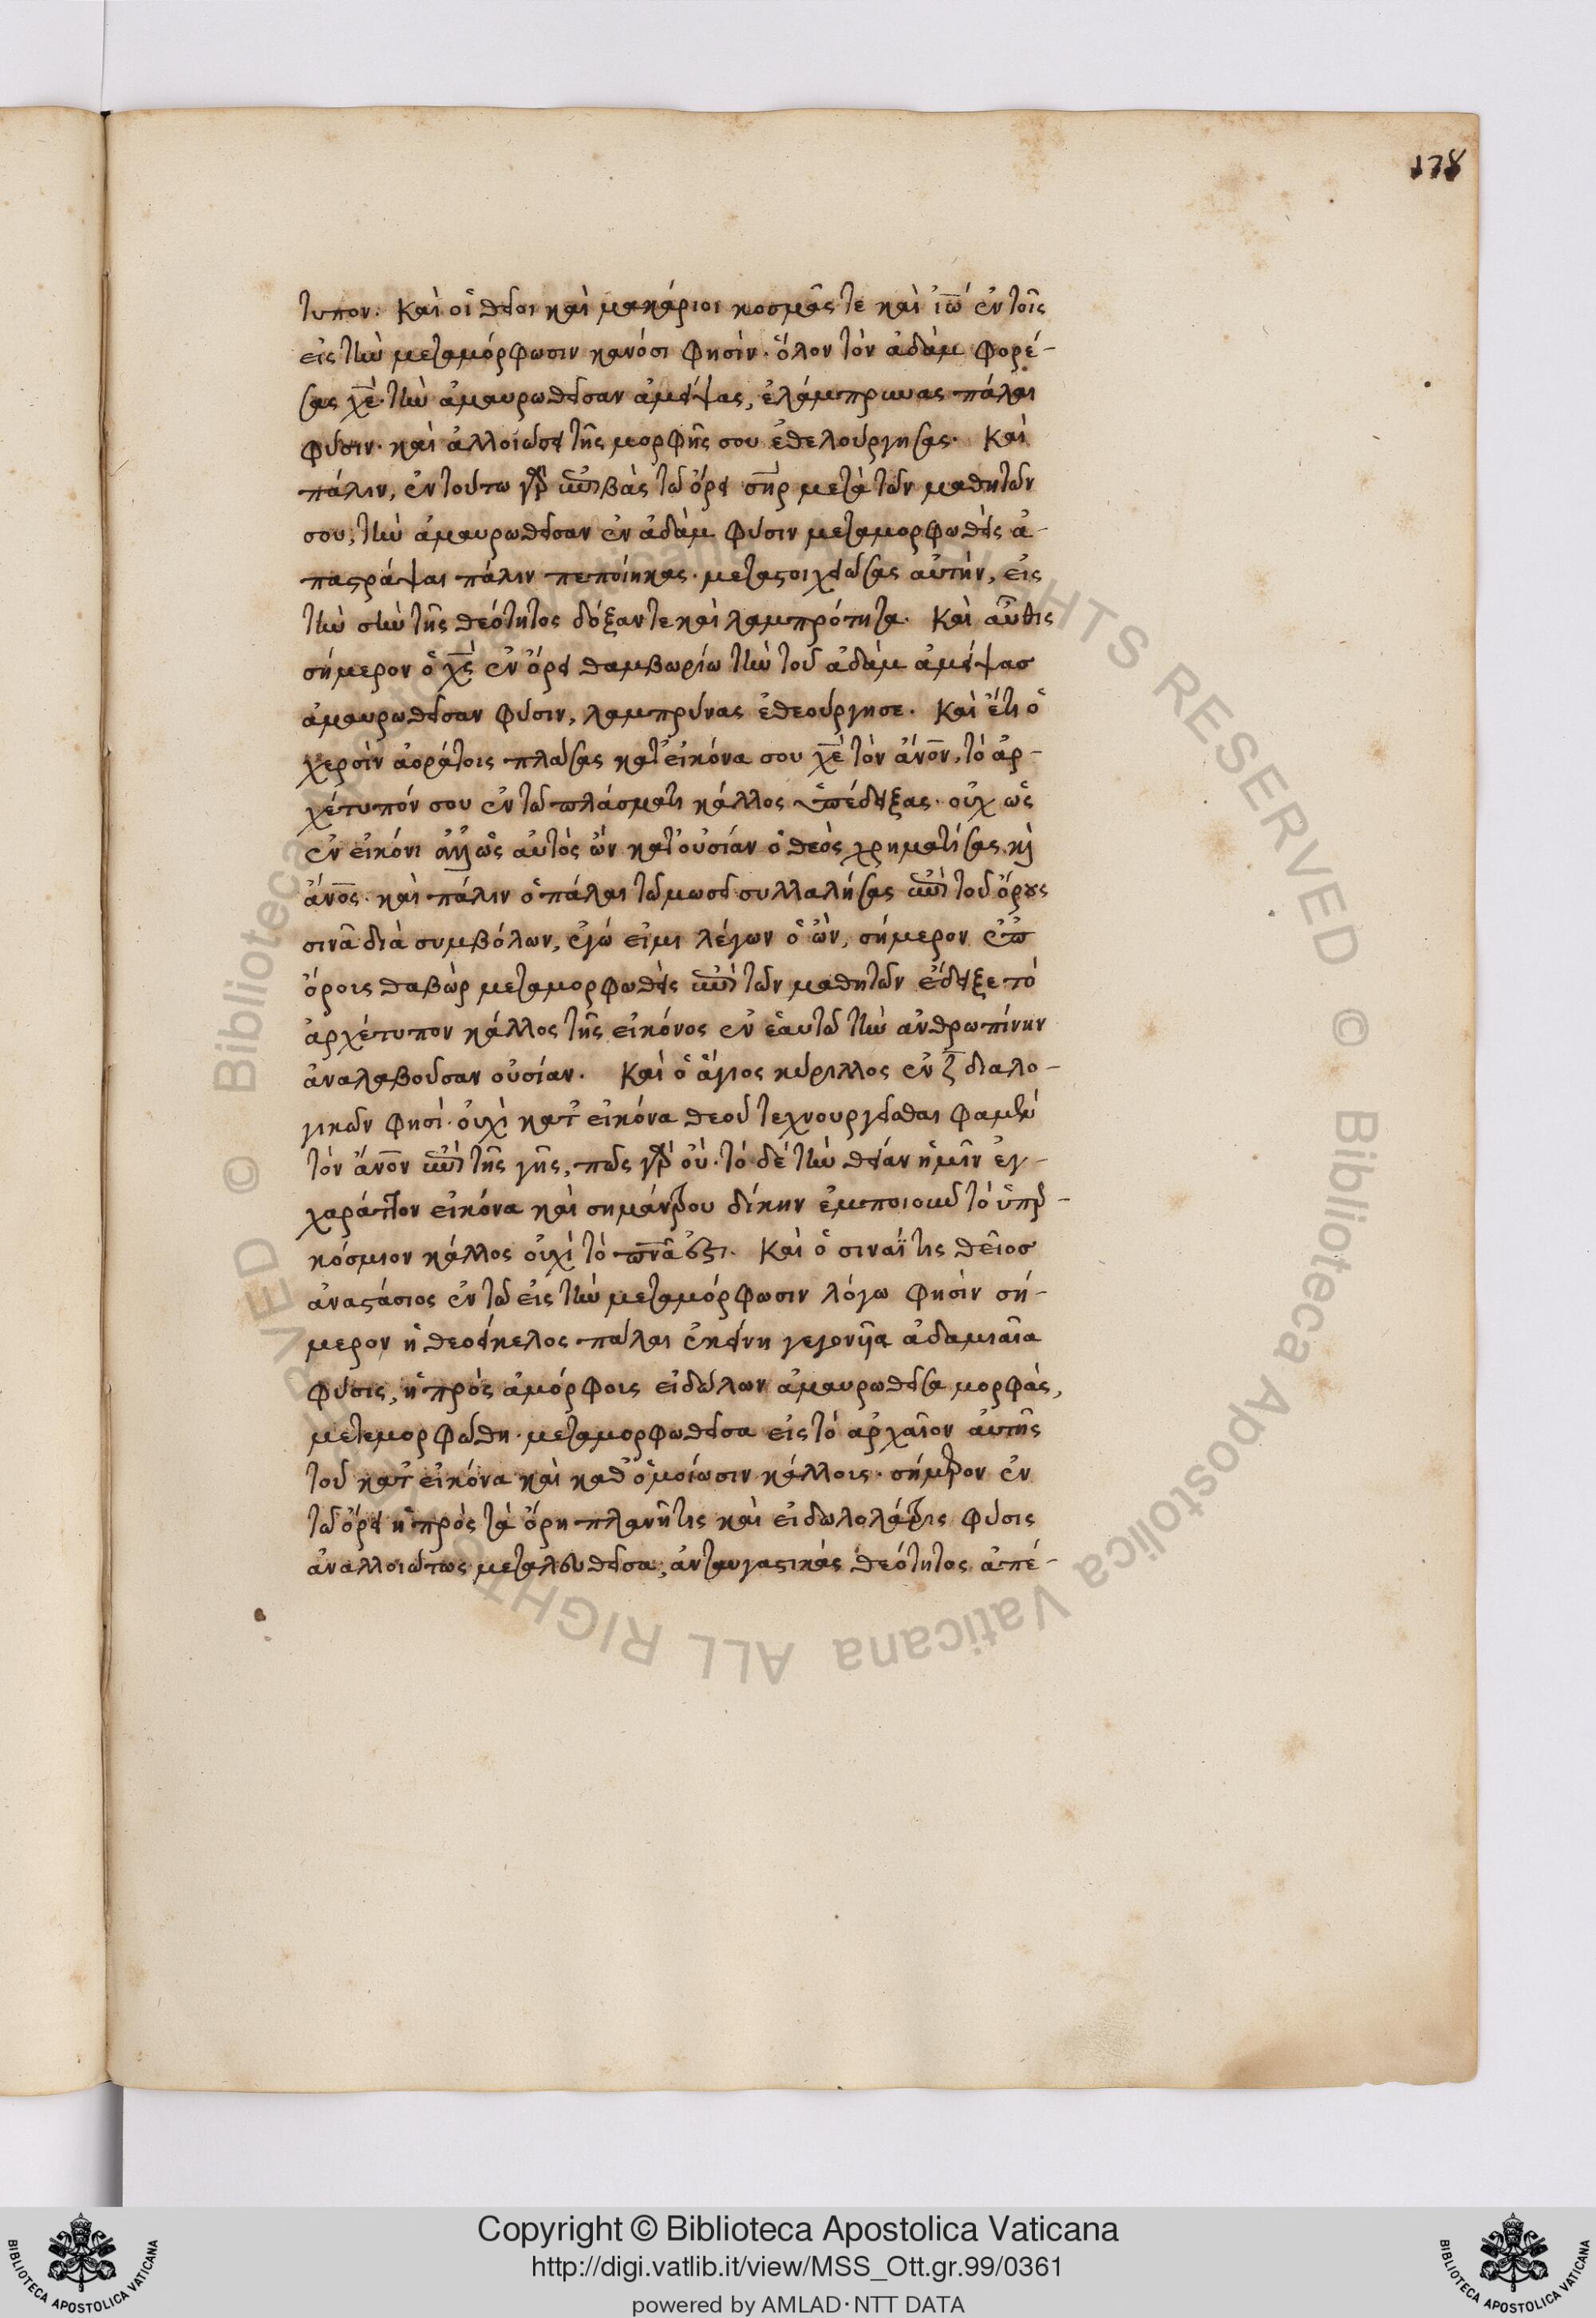 178
τυπον. Καὶ οἱ θεῖοι καὶ μακάριοι κοσμᾶς τε καὶ ἰω̅ ἐν τοῖς
εἰς τὴν μεταμόρφωσιν κανόσι φησίν. ὅλον τὸν ἀδὰμ φορέ-
σας χ̅ε̅. τὴν ἀμαυρωθεῖσαν ἀμείψας, ἐλάμπρυνας πάλαι
φύσιν. καὶ ἀλλοιώσει τῆς μορφῆς σου ἐθεούργησας. Καὶ
πάλιν, ἐν τούτω γὰρ ἐπιβὰς τῶ ὄρει σ̅η̅ρ μετὰ τῶν μαθητῶν
σου, τὴν ἀμαυρωθεῖσαν ἐν ἀδὰμ φύσιν μεταμορφωθεὶς ἀ-
παστράψαι πάλιν πεποίηκας. μεταστοιχειώσας αὐτὴν, εἰς
τὴν σὴν τῆς θεότητος δόξαν τε καὶ λαμπρότητα. Καὶ αὖθις
σήμερον ὁ χ̅ς̅ ἐν ὄρει θαμβωρίω τὴν τοῦ ἀδὰμ ἀμείψασ
ἀμαυρωθεῖσαν φύσιν, λαμπρύνας ἐθεούργησε. Καὶ ἔτι ὁ
χερσὶν ἀοράτοις πλάσας κατ' εἰκόνα σου χ̅ε̅ τὸν ἄν̅ο̅ν, τὸ ἀρ-
χέτυπόν σου ἐν τῶ πλάσματι κάλλος ὑπέδειξας. οὐχ ὡς
ἐν εἰκόνι ἀλλ' ὡς αὐτὸς ὢν κατ' οὐσίαν ὁ θεὸς χρηματίσας κὶ
ἄν̅ο̅ς. καὶ πάλιν ὁ πάλαι τῶ μωσεῖ συλλαλήσας ἐπὶ τοῦ ὄρους
σινᾶ διὰ συμβόλων, ἐγώ εἰμι λέγων ὁ ὢν, σήμερον ἐπ
ὄροις θαβὼρ μεταμορφωθεὶς ἐπὶ τῶν μαθητῶν ἔδειξε τὸ
ἀρχέτυπον κάλλος τῆς εἰκόνος ἐν ἑαυτῶ τὴν ἀνθρωπίνην
ἀναλαβοῦσαν οὐσίαν. Καὶ ὁ ἅγιος κύριλλος ἐν ζ̅ διαλο-
γικῶν φησί. οὐχὶ κατ' εἰκόνα θεοῦ τεχνουργεῖσθαι φαμὲν
τὸν ἄν̅ο̅ν ἐπὶ τῆς γῆς, πῶς γὰρ οὔ. τὸ δὲ τὴν θείαν ἡμῖν ἐγ-
χαράττον εἰκόνα καὶ σημάντρου δίκην ἐμποιοῦν τὸ ὑπερ-
κόσμιον κάλλος οὐχὶ τὸ π̅ν̅ᾶ ἐστι. Καὶ ὁ σιναΐτης θεῖοσ
ἀναστάσιος ἐν τῶ εἰς τὴν μεταμόρφωσιν λόγω φησὶν σή-
μερον ἡ θεοείκελος πάλαι ἐκείνη γεγονυῖα ἀδαμιαῖα
φύσις, ἡ πρὸς ἀμόρφοις εἰδώλων ἀμαυρωθεῖσα μορφὰς,
μετεμορφώθη. μεταμορφωθεῖσα εἰς τὸ ἀρχαῖον αὐτῆς
τοῦ κατ' εἰκόνα καὶ καθ' ὁμοίωσιν κάλλοις. σήμερον ἐν
τῶ ὄρει ἡ πρὸς τὰ ὄρη πλανῆτις καὶ εἰδωλολάτρις φύσις
ἀναλλοιώτως μεταλ θεῖσα, ἀνταυγαστικὰς θεότητος ἀπέ-
© Biblioteca Apostolica Vaticana ALL RIGHTS RESERVED © Biblioteca Apostolica Vaticana ALL RIGHTS RESERVED
Copyright © Biblioteca Apostolica Vaticana
http://digi.vatlib.it/view/MSS_Ott.gr.99/0361
powered by AMLAD·NTT DATA
BIBLIOTECA APOSTOLICA VATICANA
BIBLIOTECA APOSTOLICA VATICANA